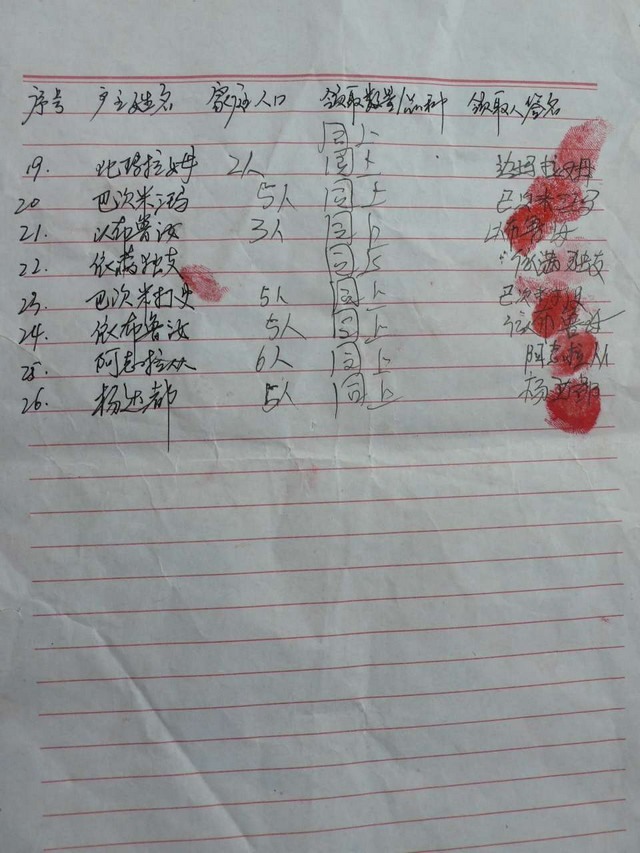 序号 户主姓名 家庭人口 领取数量/品种 领取人签名
同上
19. 拉姆 2人 同上
20 巴次米鸿 5人 同上 巴次米
21. 以布鲁汝 3人 同上 以布鲁汝
22. 依满独支 同上 依满独支
23. 巴次米打史 5人 同上 巴次
24. 依布鲁汝 5人 同上 依布鲁汝
25. 阿志拉从 6人 同上 阿志拉从
26. 杨达都 5人 同上 杨达都